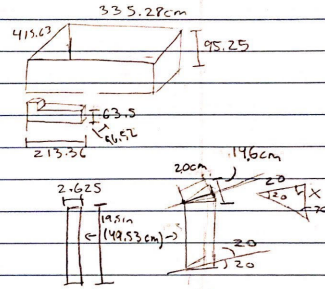 335.28cm
415.63
95.25
63.5
56.52
213.36
2.625
19.5in
(49.53cm)
20cm
14.6cm
20
20
20
x
70
20